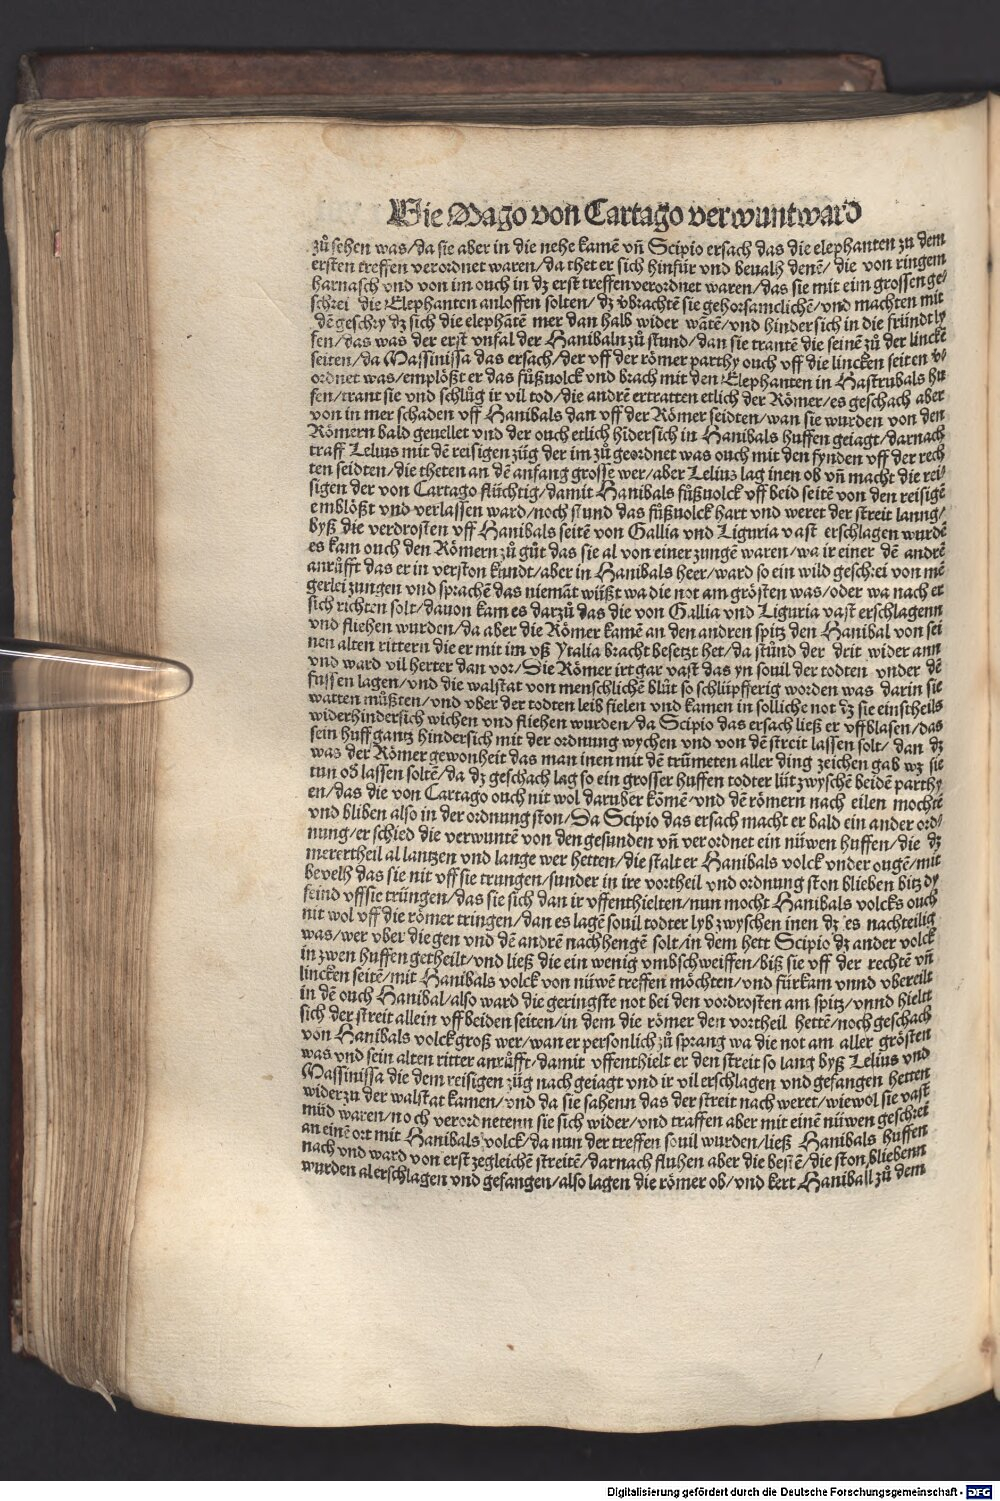 Wie Mago von Cartago verwunt ward
zů sehen was/da sie aber in die nehe kamē vñ Scipio ersach das die elephanten zu dem
ersten treffen verordnet waren/da thet er sich hinfür vnd beualh denē/ die von ringem
harnasch vnd von im ouch in dz erst treffen verordnet waren/das sie mit eim grossen ge⸗
schrei die Elephanten anloffen solten/dz vbrachtē sie gehorsamclichē/vnd machten mit
dē geschry dz sich die elephātē mer dan halb wider wātē/vnd hindersich in die fründt ly
fen/das was der erst vnfal der Hanibaln zů stund/dan sie trantē die seinē zů der lincke
seiten/da Massinissa das ersach/der vff der römer parthy ouch vff die lincken seiten v⸗
ordnet was/emplößt er das fůßuolck vnd brach mit den Elephanten in Hastrubals hu
fen/trant sie vnd schlůg ir vil tod/die andrē ertratten etlich der Römer/es geschach aber
von in mer schaden vff Hanibals dan vff der Römer seidten/wan sie wurden von den
Römern bald geuellet vnd der ouch etlich hīdersich in Hanibals huffen geiagt/darnach
traff Lelius mit dē reisigen züg der im zů geordnet was ouch mit den fynden vff der rech
ten seidten/die theten an dē anfang grosse wer/aber Lelius lag inen ob vñ macht die rei⸗
sigen der von Cartago flüchtig/damit Hanibals fůßuolck vff beid seitē von den reisigē
emblößt vnd verlassen ward/noch stund das fůßuolck hart vnd weret der streit lanng/
byß die verdrosten vff Hanibals seitē von Gallia vnd Liguria vast erschlagen wurdē
es kam ouch den Römern zů gůt das sie al von einer zungē waren/wa ir einer dē andrē
anrůfft das er in verston kundt/aber in Hanibals heer/ward so ein wild geschrei von mē
gerlei zungen vnd sprachē das niemāt wüßt wa die not am grösten was/oder wa nach er
sich richten solt/dauon kam es darzů das die von Gallia vnd Liguria vast erschlagenn
vnd fliehen wurden/da aber die Römer kamē an den andren spitz den Hanibal von sei
nen alten rittern die er mit im vß Ytalia bracht besetzt het/da stůnd der drit wider ann
vnd ward vil herter dan vor/Die Römer irt gar vast das yn souil der todten vnder dē
füssen lagen/vnd die walstat von menschlichē blůt so schlüpfferig worden was darin sie
watten můßten/vnd vber der todten leib fielen vnd kamen in solliche not dz sie einstheils
widerhindersich wichen vnd fliehen wurden/da Scipio das ersach ließ er vffblasen/das
sein huff gantz hindersich mit der ordnung wychen vnd von dē streit lassen solt/ dan dz
was der Römer gewonheit das man inen mit dē trůmeten aller ding zeichen gab wz sie
tun oď lassen soltē/da dz geschach lag so ein grosser huffen todter lüt zwyschē beidē parthy
en/das die von Cartago ouch nit wol daruber kömē vnd dē römern nach eilen mochtē
vnd bliben also in der ordnung ston/Da Scipio das ersach macht er bald ein ander ord⸗
nung/er schied die verwuntē von den gesunden vñ verordnet ein nüwen huffen/die dz
merertheil al lantzen vnd lange wer hetten/die stalt er Hanibals volck vnder ougē/mit
bevelh das sie nit vff sie trungen/sunder in ire vortheil vnd ordnung ston blieben bitz dy
feind vff sie trüngen/das sie sich dan ir vffenthielten/nun mocht Hanibals volcks ouch
nit wol vff die römer tringen/dan es lagē souil todter lyb zwyschen inen dz es nachteilig
was/wer vber die gen vnd dē andrē nachhengē solt/in dem hett Scipio dz ander volck
in zwen huffen getheilt/vnd ließ die ein wenig vmbschweiffen/biß sie vff der rechtē vñ
lincken seitē/mit Hanibals volck von nüwē treffen möchten/vnd fürkam vnnd vbereilt
in dē ouch Hanibal/also ward die geringste not bei den vordrosten am spitz/vnnd hieltt
sich der streit allein vff beiden seiten/in dem die römer den vortheil hettē/noch geschach
von Hanibals volck groß wer/wan er personlich zů sprang wa die not am aller grösten
was vnd sein alten ritter anrůfft/damit vffenthielt er den streit so lang byß Lelius vnd
Massinissa die dem reisigen züg nach geiagt vnd ir vil erschlagen vnd gefangen hetten
wider zu der walstat kamen/vnd da sie sahenn das der streit nach weret/wiewol sie vast
müd waren/noch verordnetenn sie sich wider/vnd traffen aber mit einē nüwen geschrei
an einē ort mit Hanibals volck/da nun der treffen souil wurden/ließ Hanibals huffen
nach vnd ward von erst zegleichē streitē/darnach fluhen aber die bestē/die ston bliebenn
wurden al erschlagen vnd gefangen/also lagen die römer ob/vnd kert Haniball zů dem
Digitalisierung gefördert durch die Deutsche Forschungsgemeinschaft - DFG